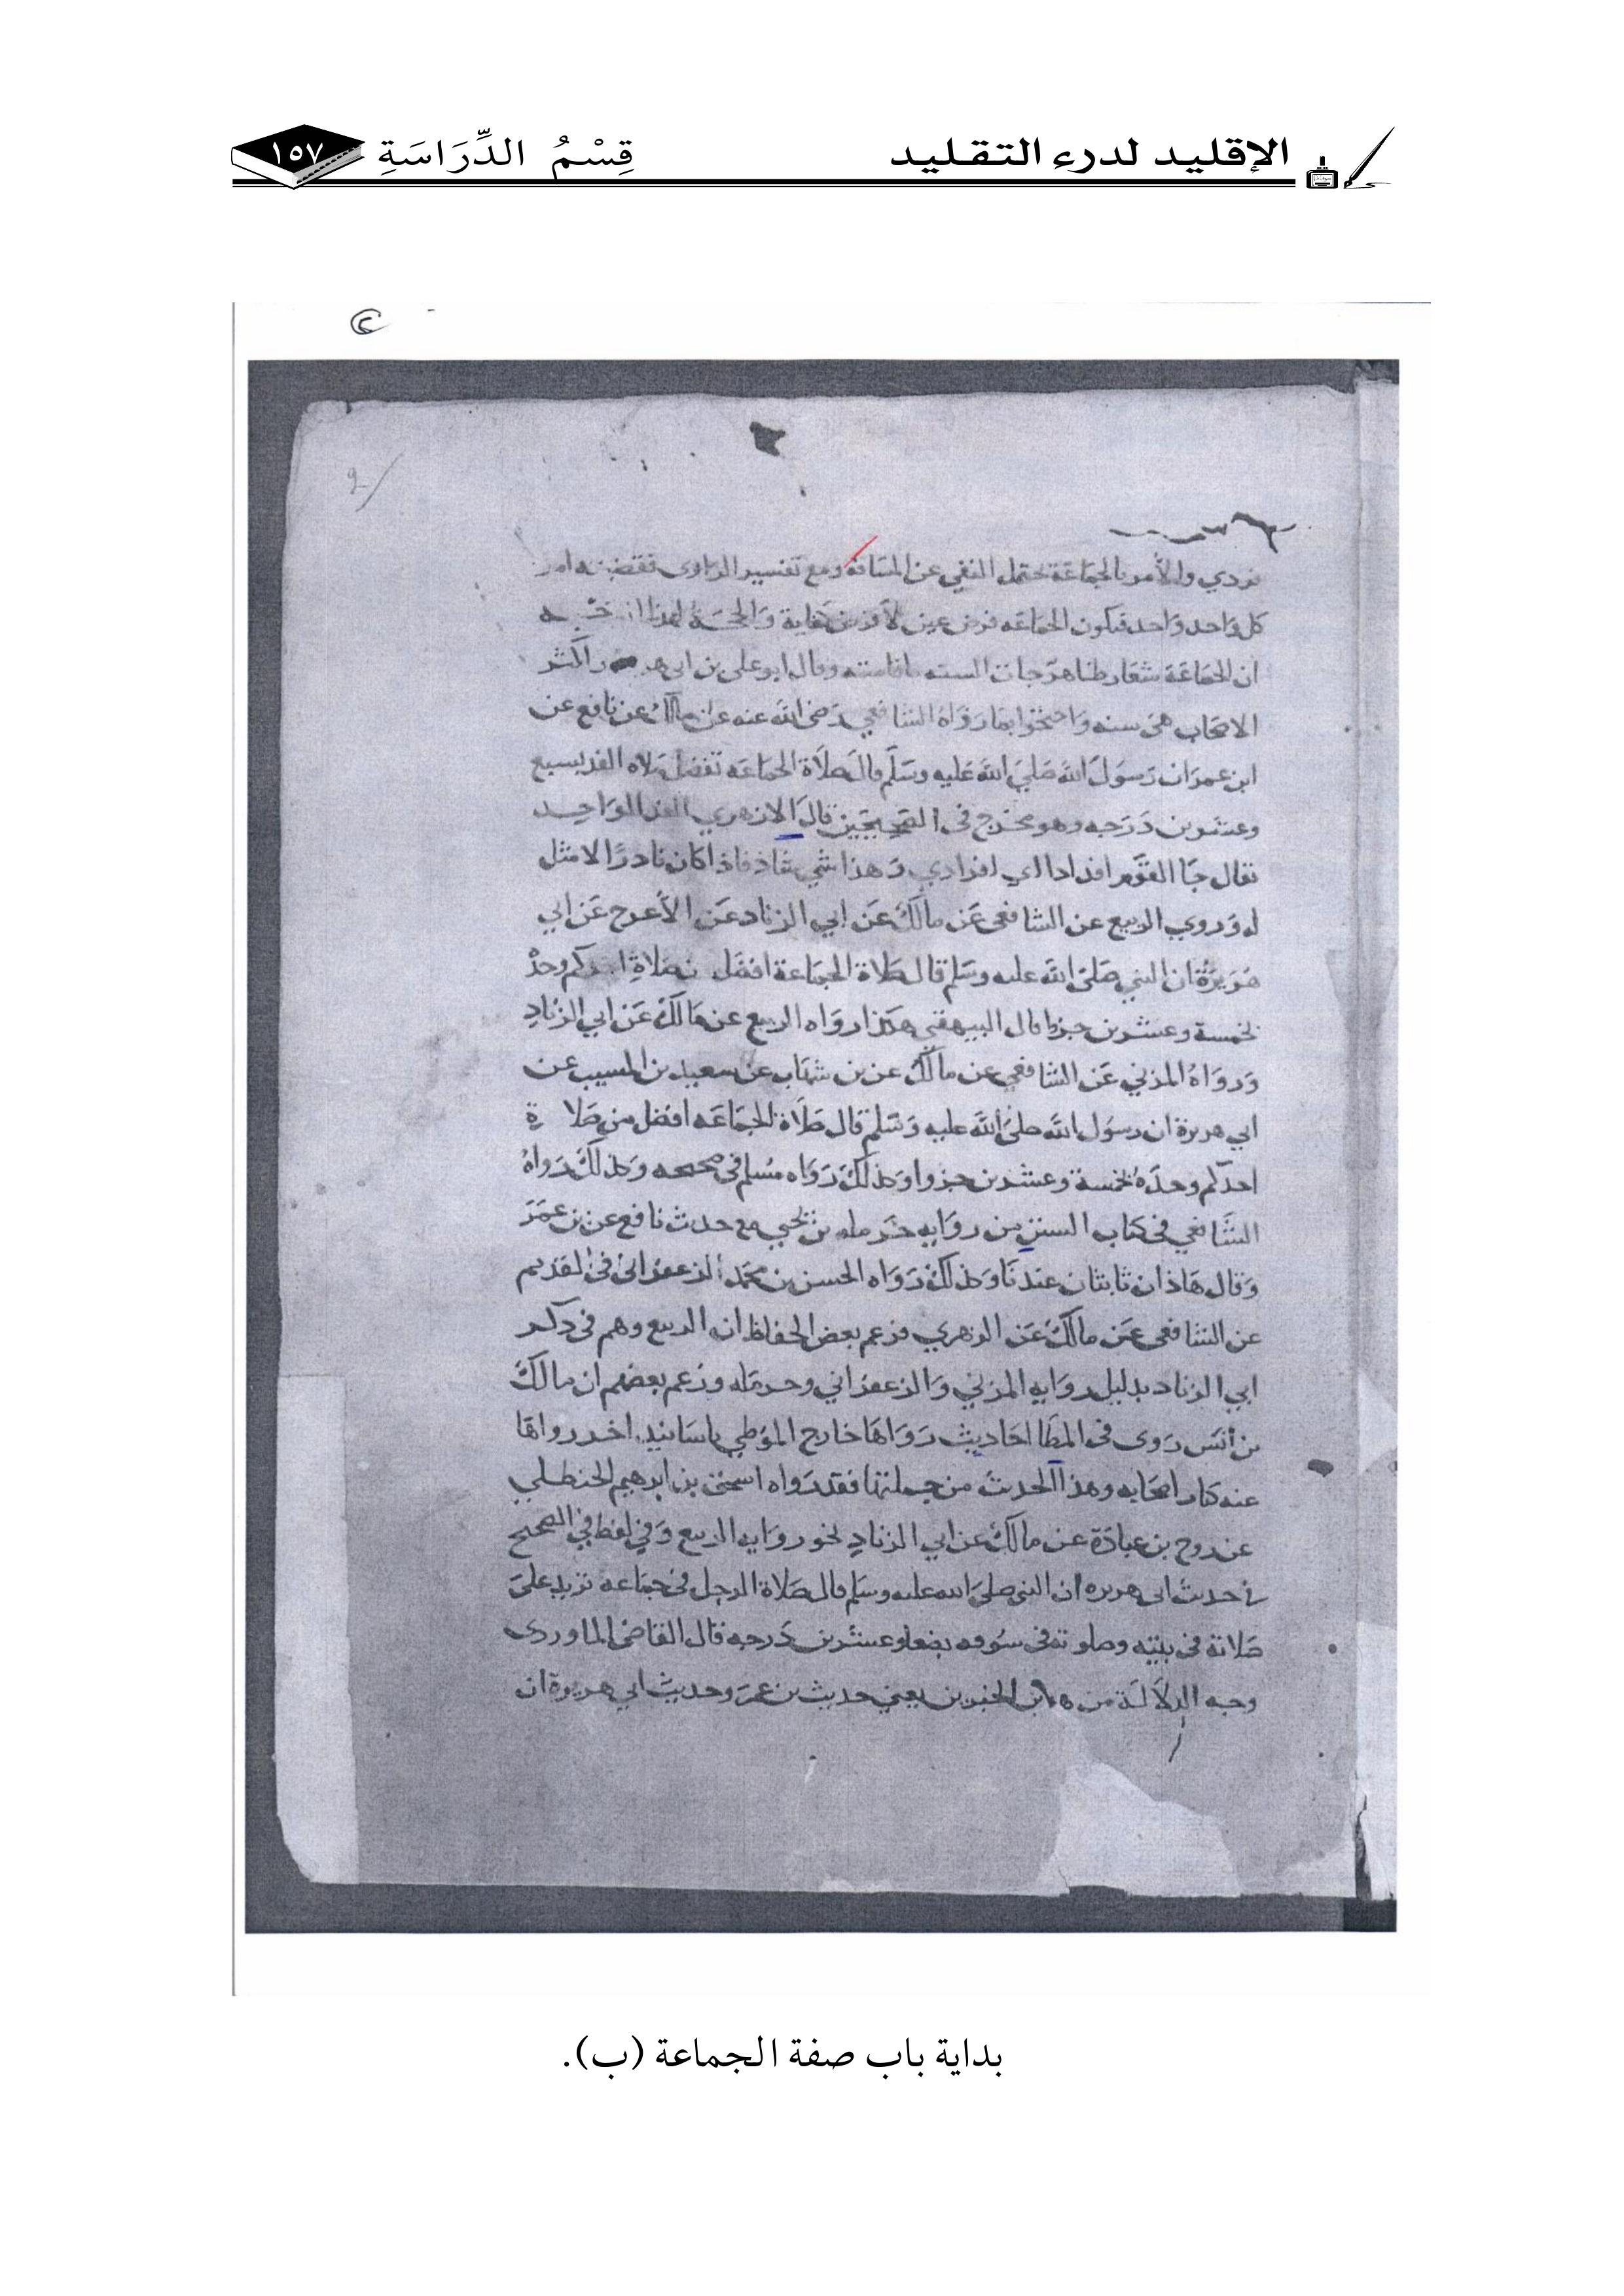 الإقليد لدرء التقليد
قِسْمُ الدِّرَاسَةِ
١٥٧
نودي والأمر بالجماعة يحتمل النفي عن ومع تفسير الراوي
كل واحد واحد فيكون الجماعه فرض عين لا فرض كفاية
ان الجماعة شعار وقال ابو علي بن ابي
الاصحاب هي سنه واحتجوا بما رَوَاهُ الشافعي رَضي الله عنه عن مالك عن نافع عن
ابن عمر ان رَسولَ الله صَليَ الله عَليه وسَلّم قال صَلَاة الجماعَه تفضل صَلاه الفذ بسبع
وعشرين دَرَجه وهو مخرج في الصحيحين قال الازهري الفذ الوَاحِد
يقال جَا القوم افذاذا اي افرادي وَهذا شي شاذ فاذ اذا كان نادرًا لا مثل
له وَروي الربيع عن الشافعي عَن مالك عَن ابي الزناد عَن الأعرج عَن ابي
هُرَيرَةَ ان النبي صَلىَ الله عليه وسَلم قال صَلاة الجمَاعة افضل من صَلاةِ احدكم وحدهُ
بخمسة وعشرين جزءا قال البيهقي هكذا رواه الربيع عن مالك عَن ابي الزنادِ
وَرواهُ المزني عَن الشافعي عن مالك عن بن شهَاب عن سعيد بن المسيب عن
ابي هريرة ان رسوُل الله صليَ الله عليه وَسَلم قال صَلَاة الجماعَه افضل من صَلاة
احدكم وحدَهُ بخمسة وعشرين جزوا وكذلك رَوَاه مسُلم في صحيحه وَكذلك رَواهُ
الشَافعي في كتاب السنن من روَايه حَرمله بن يحيي مع حديث نافع عن بن عمَرَ
وَقال هَاذان ثابتان عندنَا وكذلك رَوَاه الحسن بن محمَد الزعفراني في القديم
عن الشافعي عَن مالك عَن الزهري وزعم بعض الحفاظ ان الربيع وهم في ذكر
ابي الزناد بدليل روَايه المزني وَالزعفراني وحرمَله وزعم بعضهم ان مالك
بن أنسَ رَوى في الموطا احَاديث رَوَاهَا خارج الموُطي باسَانيد اخر رواهَا
عنه كبار اصحَابه وهذا الحديث من جملتها فقد رَواه اسحق بن ابرهيم الحنظلي
عن روح بن عبادَة عن مالك عن ابي الزنادِ نحو روَايه الربيع وَفي لفظ في الصحيح
في حديث ابي هريره ان النبي صليَ الله عليه وسَلم قال صَلاة الرجل في جماعه تزيد عليَ
صَلاته في بيته وصلوته في سُوقه بضعا وعشرين دَرجه قال القاضي الماوردي
وجه الدلَالَة من هذين الخبرين يعني حديث بن عمرَ وحديث ابي هريرة ان
بداية باب صفة الجماعة (ب).